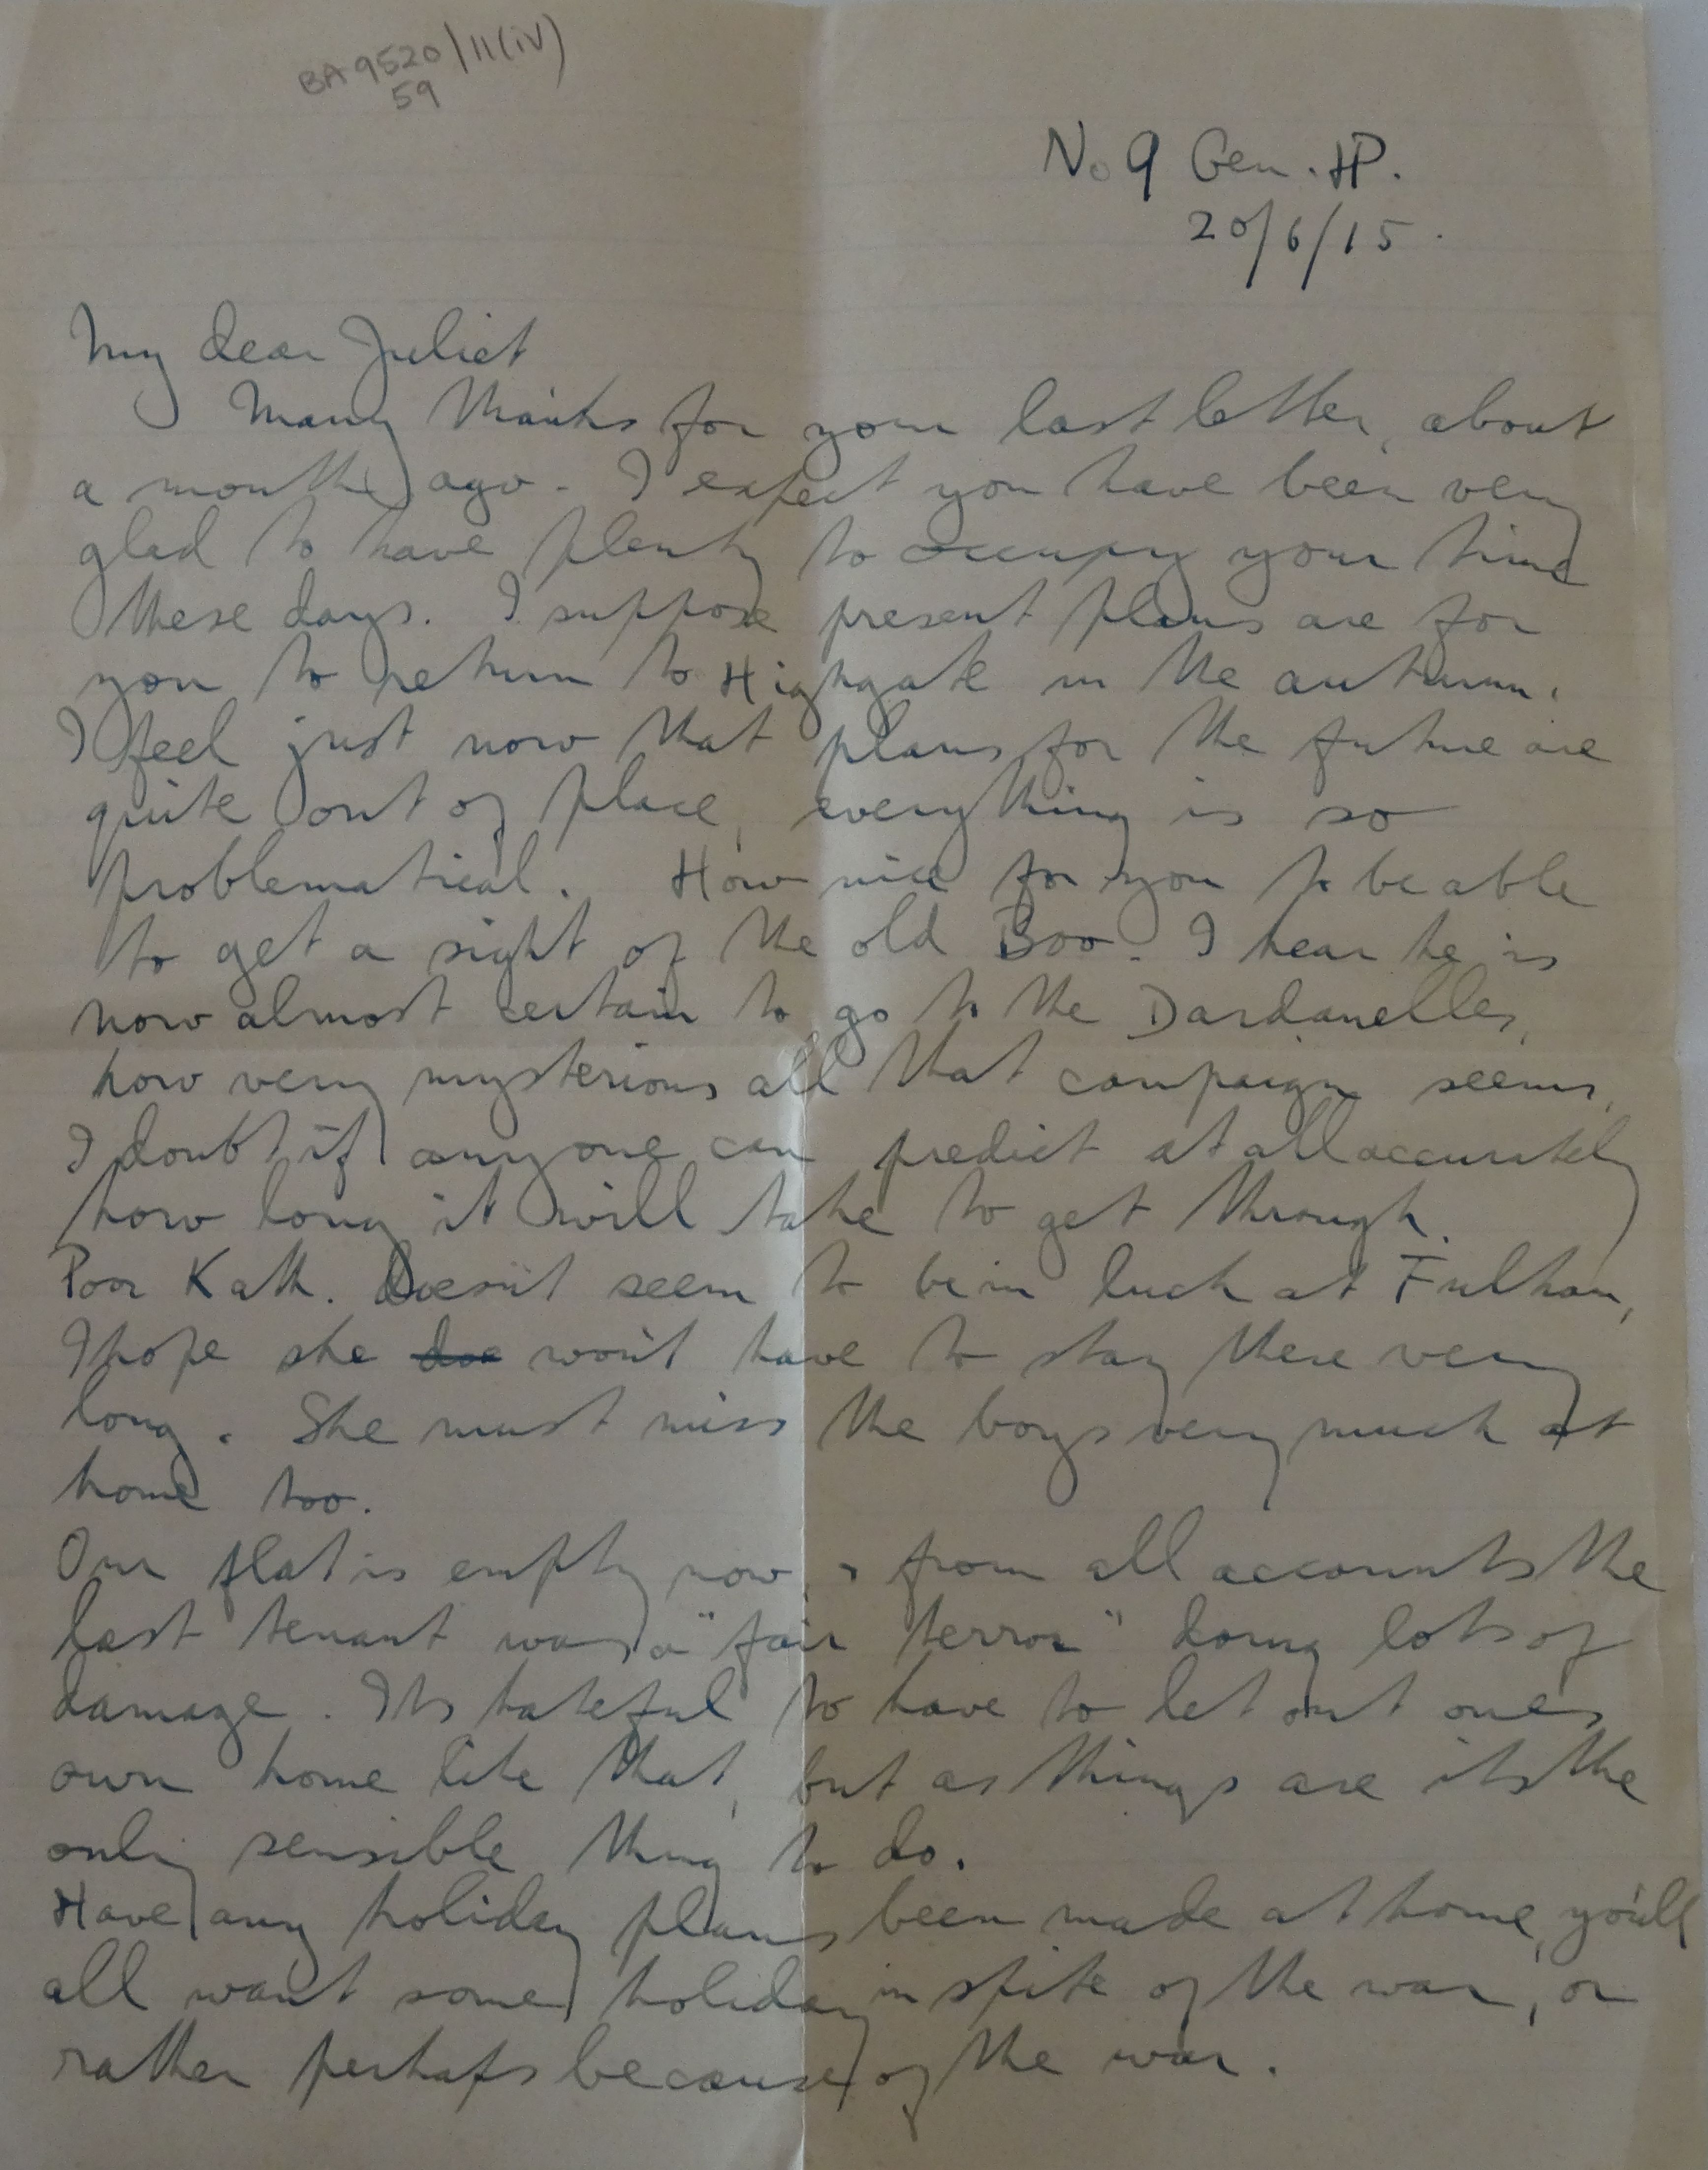 BA 9520/11(iv)
59
No 9 Gen. HP.
20/6/15.
My dear Juliet
Many thanks for your last letter, about
a month ago. I expect you have been very
glad to have plenty to occupy your time
these days. I suppose present plans are for
you to return to Highgate in the autumn.
I feel just now that plans for the future are
quite out of place, everything is so
problematical. How nice for you to be able
to get a sight of the old Boo. I hear he is
now almost certain to go to the Dardanelles,
how very mysterious all that campaign seems,
I doubt if anyone can predict at all accurately
how long it will take to get through.
Poor Kath. Doesn't seem to be in luck at Fulham,
I hope she doe won't have to stay there very
long. She must miss the boys very much at
home too.
Our flat is empty now, & from all accounts the
last tenant was a "fair terror" doing lots of
damage. Its hateful to have to let out ones
own home like that, but as things are its the
only sensible thing to do.
Have any holiday plans been made at home, you'll
all want some holiday in spite of the war, or
rather perhaps because of the war.